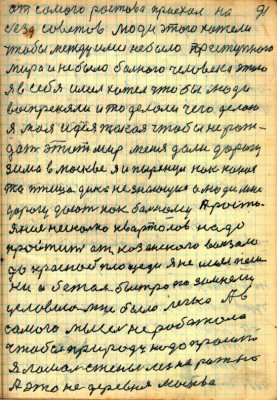 от самого ростова приехал на
сезд советов Люди этого хотели
чтобы между ими небыло преступного
мира и небыло больного человека этого
я в себя имел хотел чтобы люди
восприняли и то делали чего делаю
я моя идея такая чтобы не рож
дат этот мир меня дали дорогу
зима в москве я и
та птица дика незнающие а люди мне
дорогу дают как больному А просто
Я ничего несколько кварталов надо
пройти от казанского вокзала
до красной площади я не шел пеш
ни а бежал быстро по зимнему
условию мне было легко А в
самого мысел не работала
чтобы природу надо просить
Я ломал стены лез на рожно
А это не деревня москва